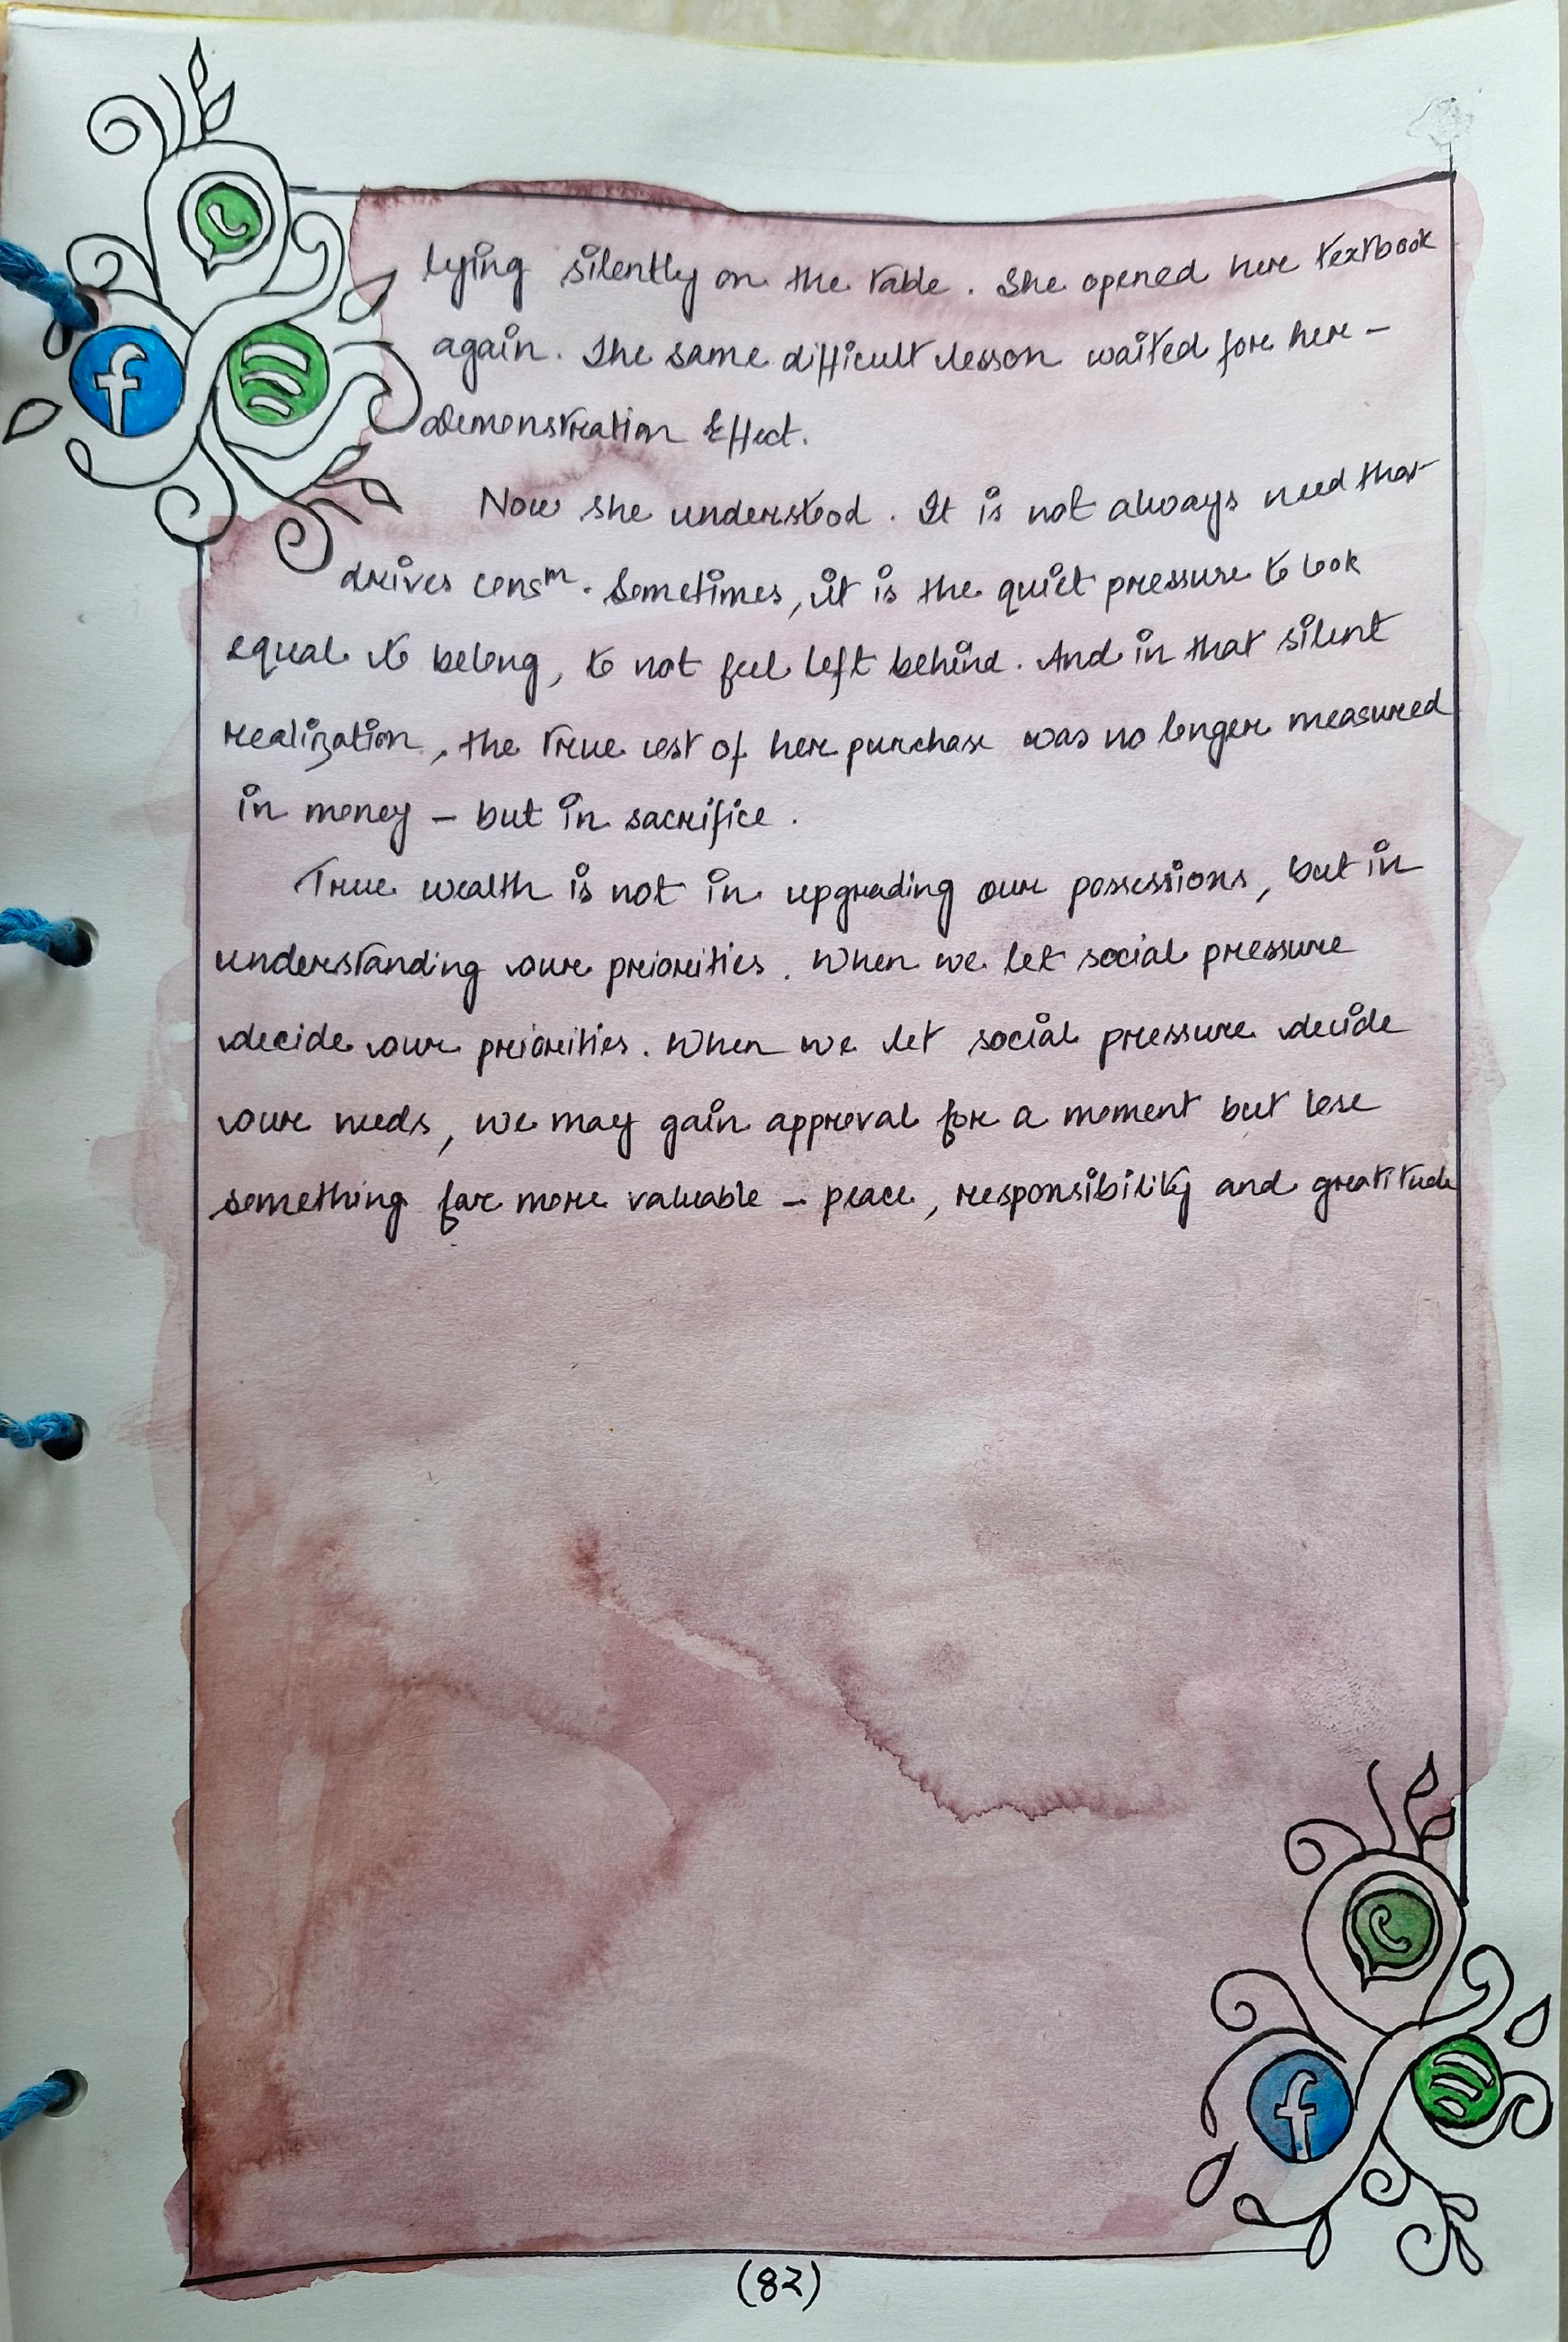 lying silently on the table. She opened her textbook
again. The same difficult lesson waited for her –
Demonstration Effect.
Now she understood. It is not always need that
drives consᵐ. Sometimes, it is the quiet pressure to look
equal to belong, to not feel left behind. And in that silent
realization, the true cost of her purchase was no longer measured
in money – but in sacrifice.
True wealth is not in upgrading our possessions, but in
understanding our priorities. When we let social pressure
decide our priorities. When we let social pressure decide
our needs, we may gain approval for a moment but lose
something far more valuable – peace, responsibility and gratitude
(82)